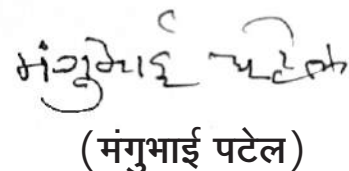 मंगुभाई पटेल
(मंगुभाई पटेल)